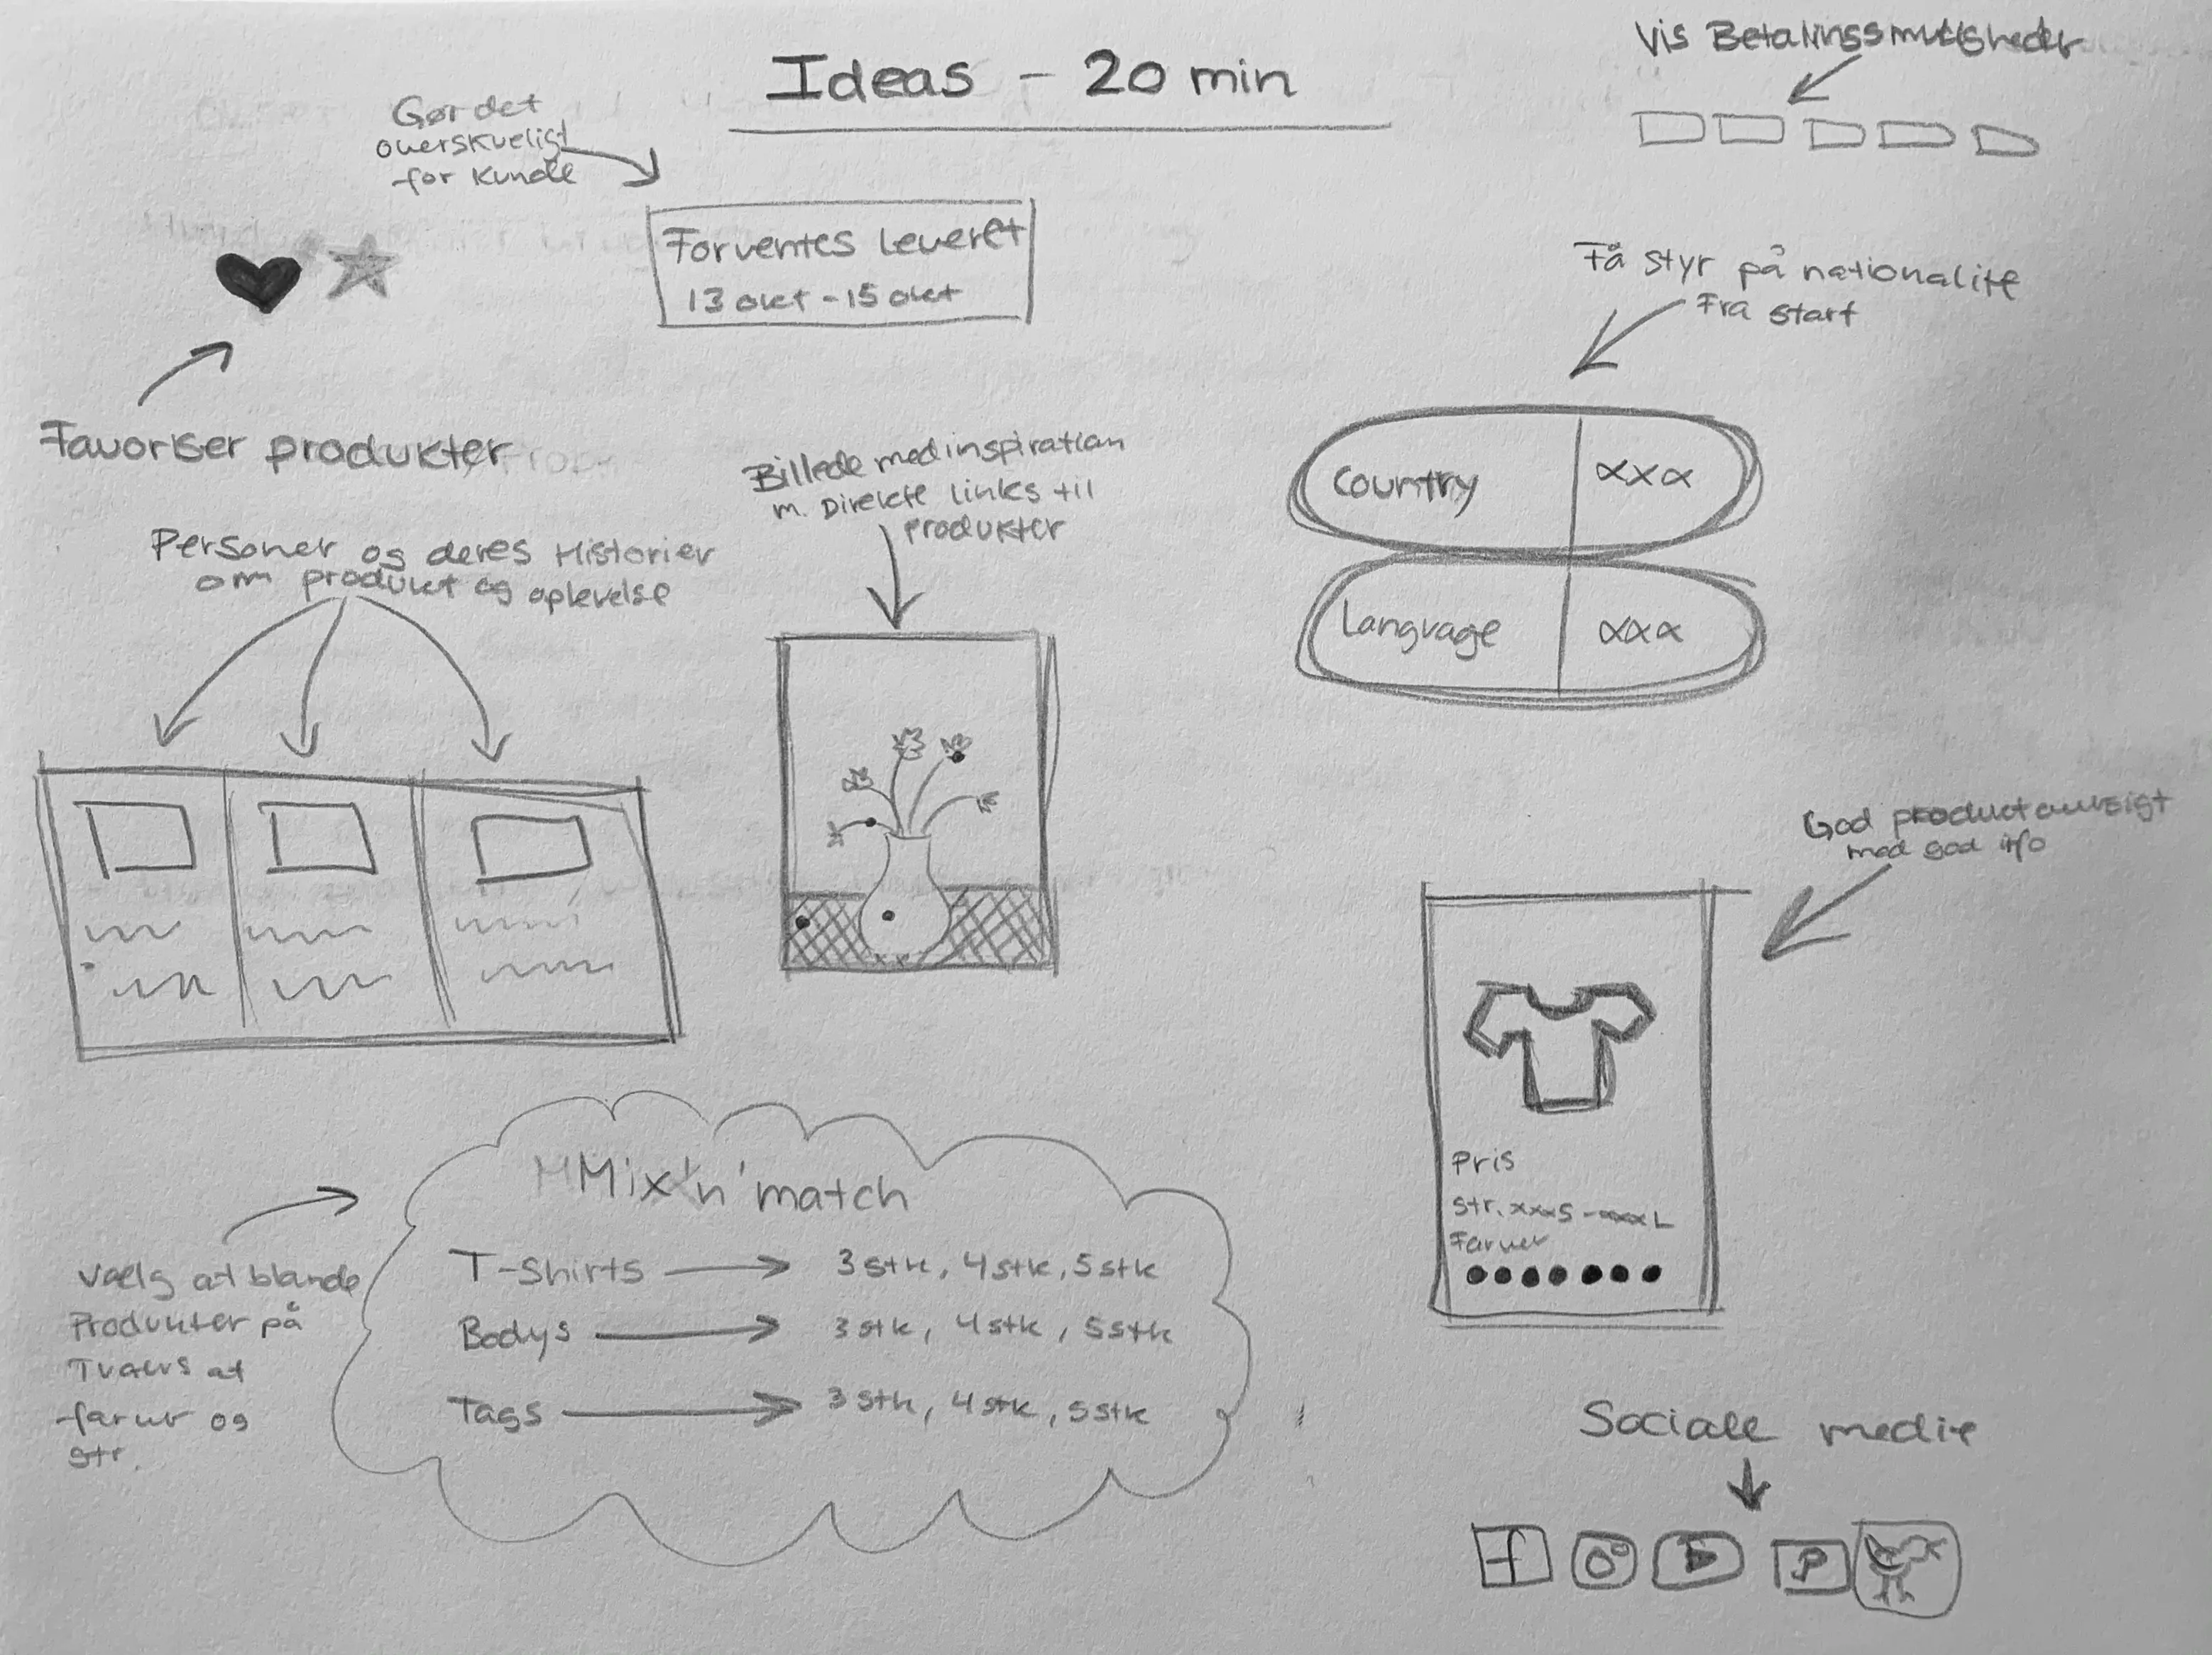 Ideas - 20 min
Vis Betalingsmuligheder
Gør det
overskueligt
for kunde
Forventes leveret
13 okt - 15 okt
Få styr på nationalitet
Fra start
Favoriser produkter
Billede med inspiration
m. Direkte links til
produkter
Country xxx
Language xxx
Personer og deres Historier
om produkt og oplevelse
God product
med god info
Pris
str. xxxS - xxxL
Farver
Mix'n'match
T-Shirts → 3 stk, 4 stk, 5 stk
Bodys → 3 stk, 4 stk, 5 stk
Tags → 3 stk, 4 stk, 5 stk
Vælg at blande
Produkter på
Tværs af
farver og
str.
Sociale medie
f P